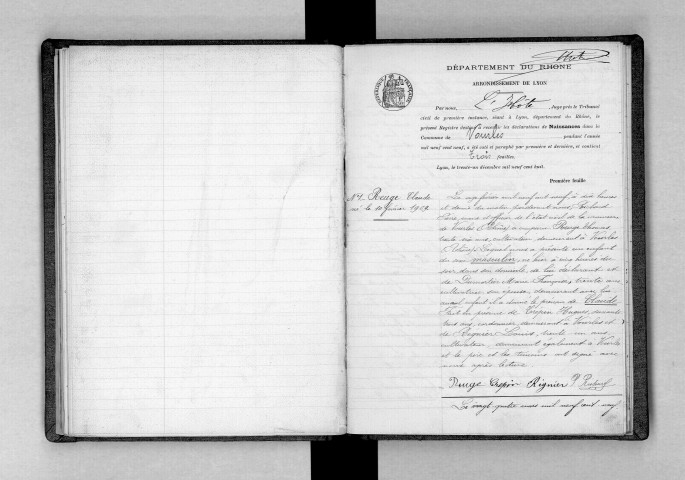 L'Hote
DÉPARTEMENT DU RHONE
ARRONDISSEMENT DE LYON
Par nous, L'Hote, Juge près le Tribunal
civil de première instance, séant à Lyon, département du Rhône, le
présent Registre destiné à recevoir les déclarations de Naissances dans la
Commune de Vourles pendant l'année
mil neuf cent neuf, a été coté et paraphé par première et dernière, et contient
Trois feuilles.
Lyon, le trente-un décembre mil neuf cent huit.
Première feuille
N° 1. Rouge Claude
né le 10 février 1909
Le onze février mil neuf cent neuf à dix heures
et demie du matin pardevant nous,
maire officier de l'état civil de la commune
de Vourles (Rhône) a comparu Rouge Thomas
trente six ans, cultivateur, demeurant à Vourles
(Rhône) lequel nous a présenté un enfant
du sexe masculin, né hier à heures du
soir dans son domicile, de lui déclarant et
de Marie Françoise, trente ans
cultivatrice, son épouse, demeurant avec lui
auquel enfant il a donné le prénom de Claude
Fait en présence de Crépin Hugues, soixante
trois ans, cordonnier, demeurant à Vourles et
de Rignier Louis, trente un ans
cultivateur, demeurant également à Vourles
et le père et les témoins ont signé avec
nous après lecture
Rouge Crépin Rignier
Le vingt quatre mars mil neuf cent neuf